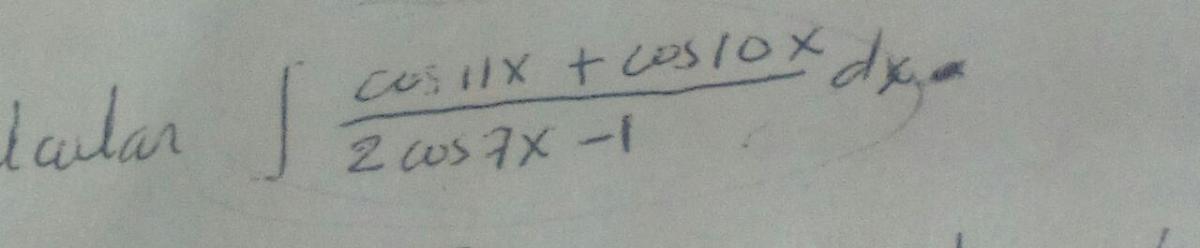 lcular ∫ (cos 11x + cos 10x)/(2 cos 7x - 1) dx